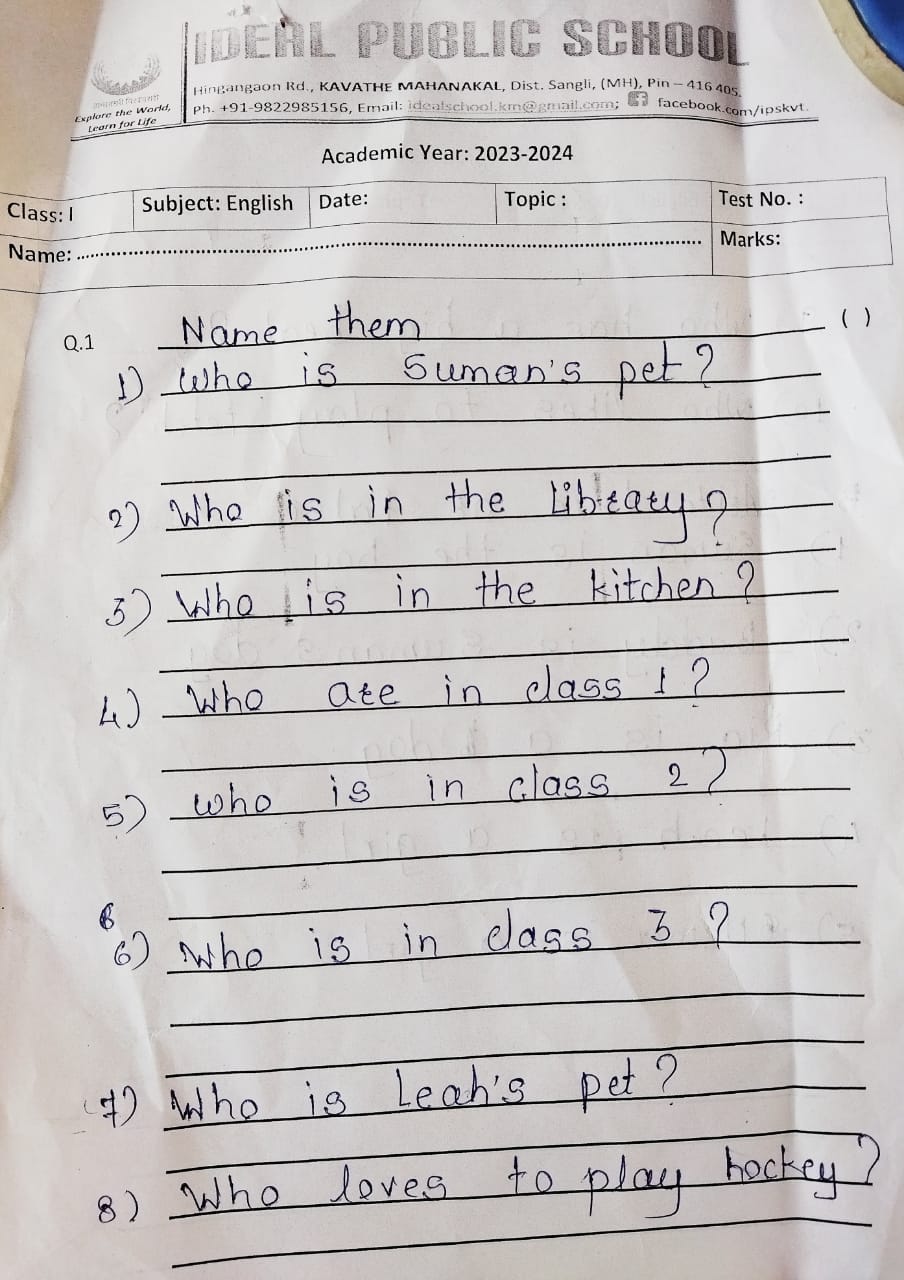 IDEAL PUBLIC SCHOOL
Hingangaon Rd., KAVATHE MAHANAKAL, Dist. Sangli, (MH), Pin – 416 405.
Ph. +91-9822985156, Email: idealschool.km@gmail.com; facebook.com/ipskvt.
Explore the World,
Learn for Life
Academic Year: 2023-2024
Class: I Subject: English Date: Topic : Test No. :
Name: Marks:
Q.1 Name them ( )
1) Who is Suman's pet?
2) Who is in the library?
3) Who is in the kitchen?
4) Who are in class 1?
5) who is in class 2?
6
6) Who is in class 3?
7) Who is Leah's pet?
8) Who loves to play hockey?